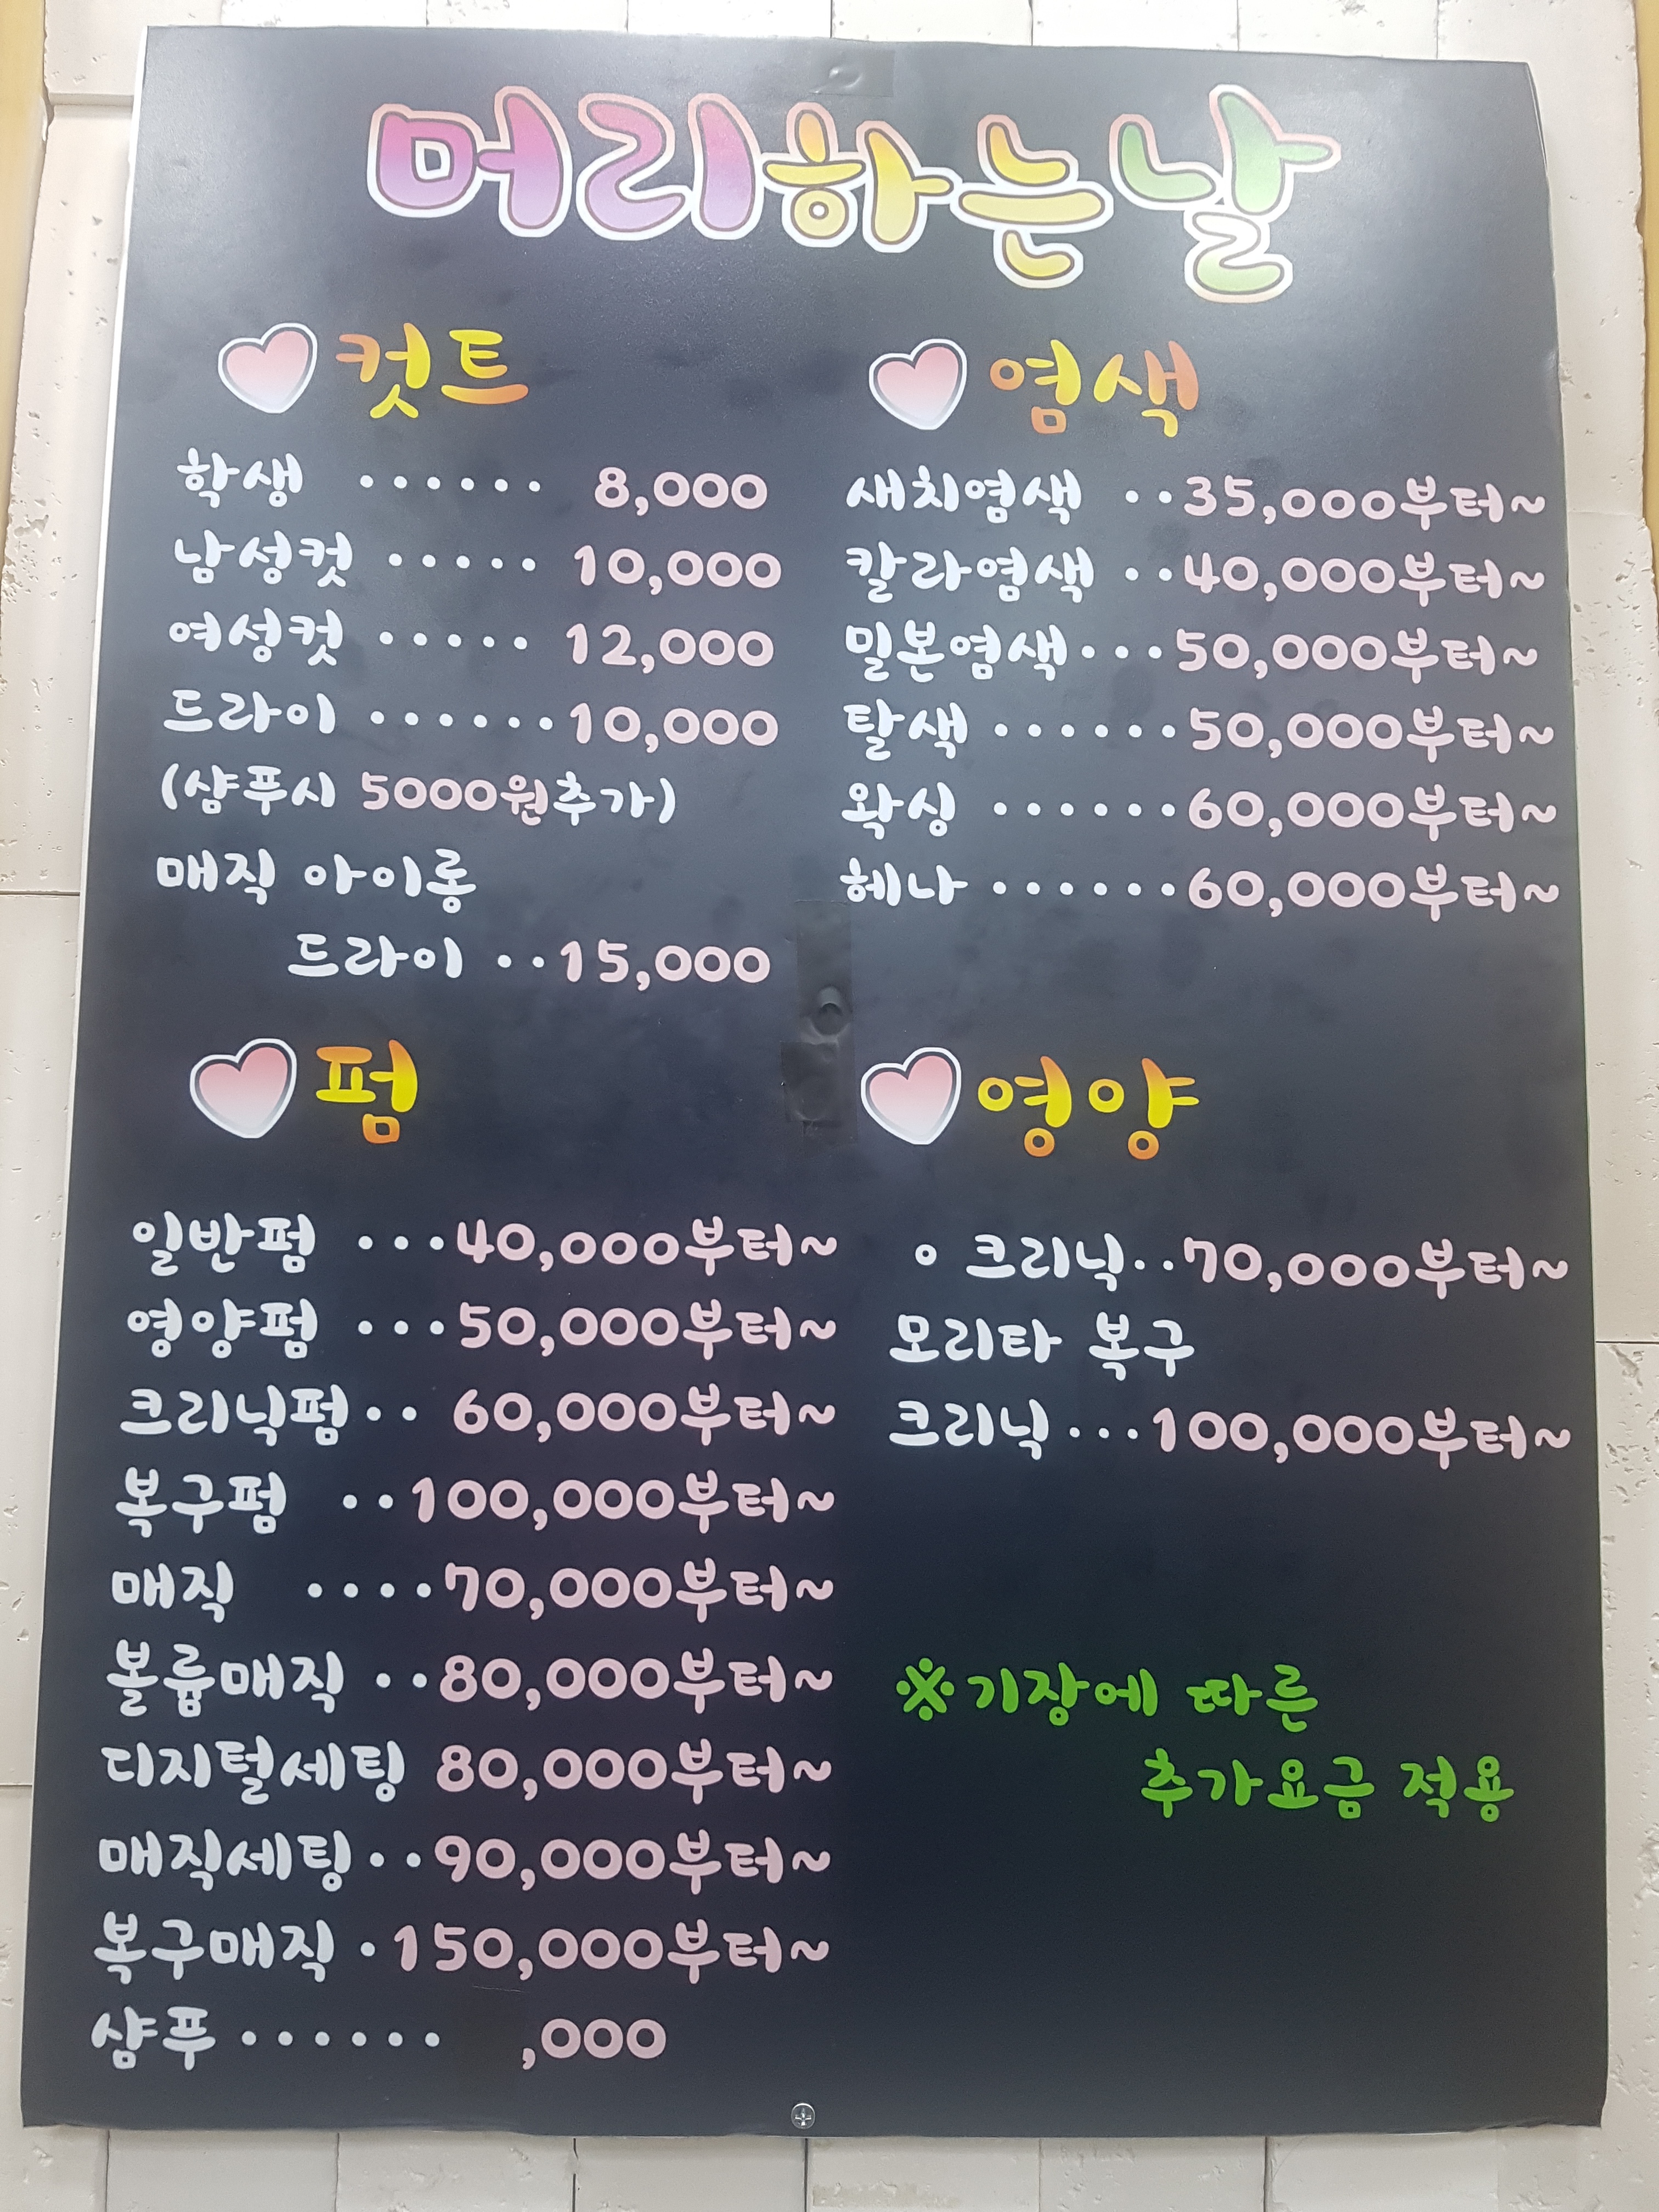 머리하는날
컷트
학생 ...... 8,000
남성컷 ..... 10,000
여성컷 ..... 12,000
드라이 ......10,000
(샴푸시 5000원추가)
매직 아이롱
드라이 ..15,000
염색
새치염색 ..35,000부터~
칼라염색 ..40,000부터~
밀본염색...50,000부터~
탈색 ......50,000부터~
왁싱 ......60,000부터~
헤나 ......60,000부터~
펌
일반펌 ...40,000부터~
영양펌 ...50,000부터~
크리닉펌.. 60,000부터~
복구펌 ..100,000부터~
매직 ....70,000부터~
볼륨매직 ..80,000부터~
디지털세팅 80,000부터~
매직세팅..90,000부터~
복구매직 .150,000부터~
샴푸 ...... ,000
영양
◦ 크리닉..70,000부터~
모리타 복구
크리닉...100,000부터~
※기장에 따른
추가요금 적용